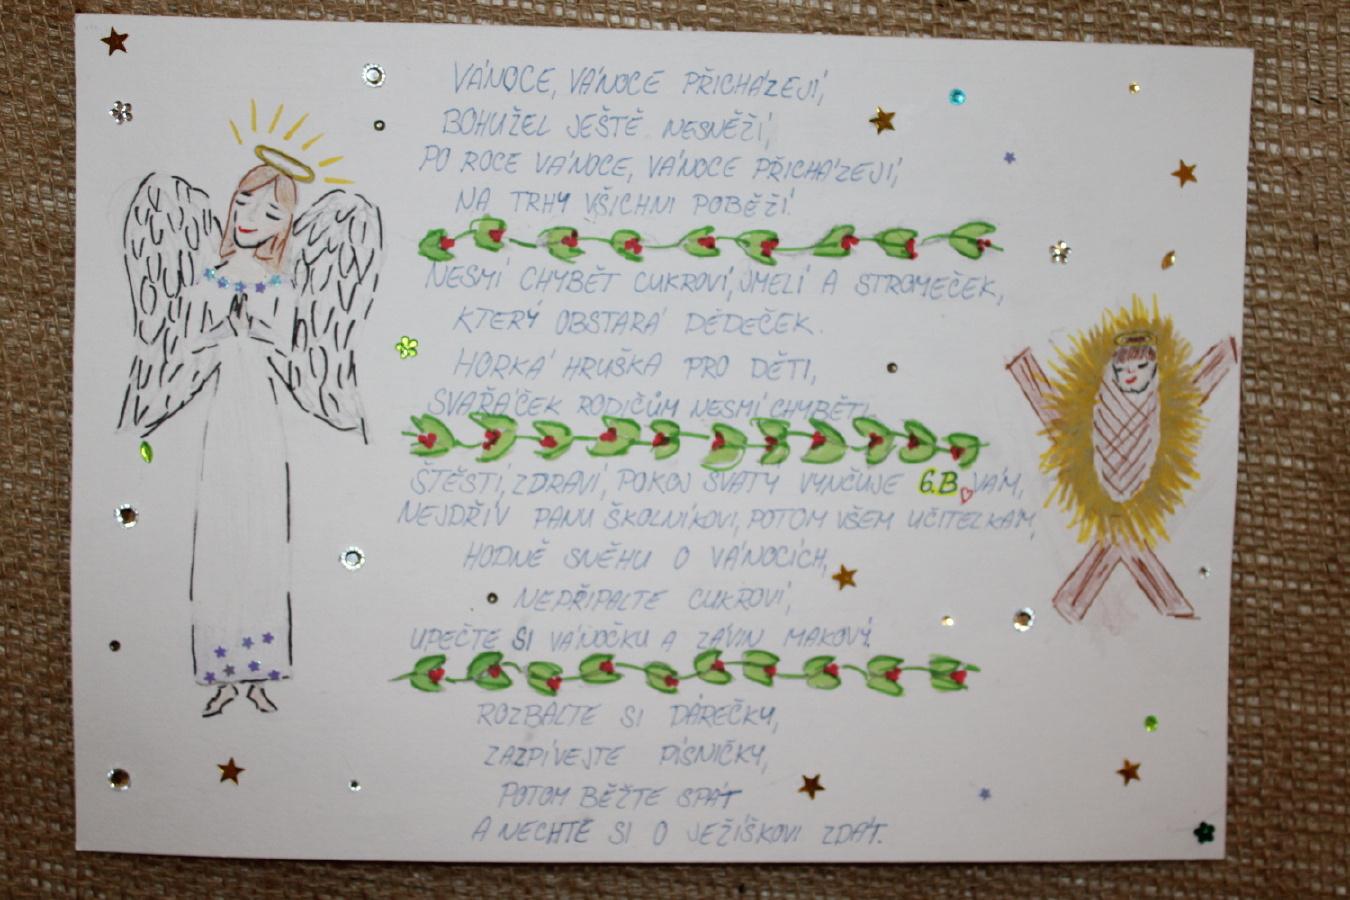 VÁNOCE, VÁNOCE PŘICHÁZEJÍ,
BOHUŽEL JEŠTĚ NESNĚŽÍ,
PO ROCE VÁNOCE, VÁNOCE PŘICHÁZEJÍ,
NA TRHY VŠICHNI POBĚŽÍ.
NESMÍ CHYBĚT CUKROVÍ, JMELÍ A STROMEČEK,
KTERÝ OBSTARÁ DĚDEČEK.
HORKÁ HRUŠKA PRO DĚTI,
SVAŘÁČEK RODIČŮM NESMÍ CHYBĚTI.
ŠTĚSTÍ, ZDRAVÍ, POKOJ SVATÝ VYNČUJE 6.B VÁM,
NEJDŘÍV PANU ŠKOLNÍKOVI, POTOM VŠEM UČITELKÁM,
HODNĚ SNĚHU O VÁNOCÍCH,
NEPŘIPALTE CUKROVÍ,
UPEČTE SI VÁNOČKU A ZÁVIN MAKOVÝ.
ROZBALTE SI DÁREČKY,
ZAZPÍVEJTE PÍSNIČKY,
POTOM BĚŽTE SPÁT
A NECHTE SI O JEŽÍŠKOVI ZDÁT.